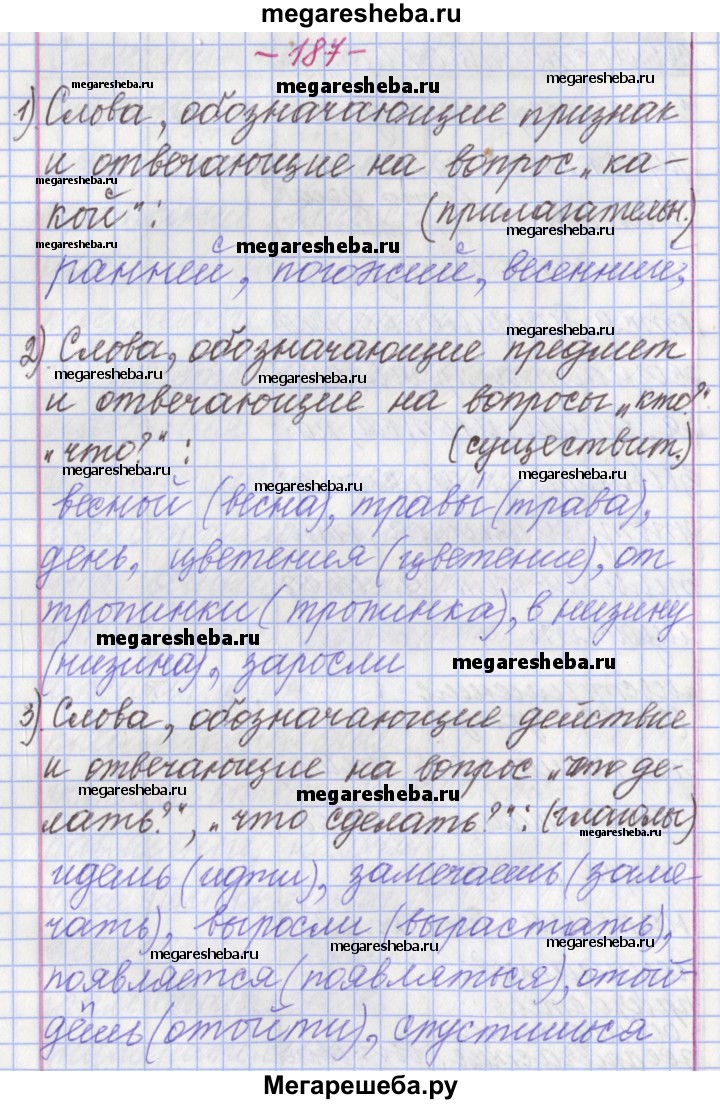 megaresheba.ru
- 187 -
megaresheba.ru megaresheba.ru megaresheba.ru
1) Слова, обозначающие признак
megaresheba.ru
и отвечающие на вопрос „ка-
megaresheba.ru
кой": (прилагательн.)
megaresheba.ru megaresheba.ru megaresheba.ru
ранней, погожий, весенний,
megaresheba.ru
2) Слова, обозначающие предмет
megaresheba.ru megaresheba.ru
и отвечающие на вопросы „кто?"
„что?": (существит.)
megaresheba.ru megaresheba.ru megaresheba.ru
весной (весна), травы (трава),
день, цветения (цветение), от
тропинки (тропинка), в низину
megaresheba.ru megaresheba.ru
(низина), заросли
3) Слова, обозначающие действие
и отвечающие на вопрос „что де-
megaresheba.ru megaresheba.ru
лать?", „что сделать?": (глаголы)
megaresheba.ru
идешь (идти), замечаешь (заме-
чать), выросли (вырастать),
megaresheba.ru megaresheba.ru megaresheba.ru
появляется (появляться), отой-
дёшь (отойти), спустишься
Мегарешеба.ру